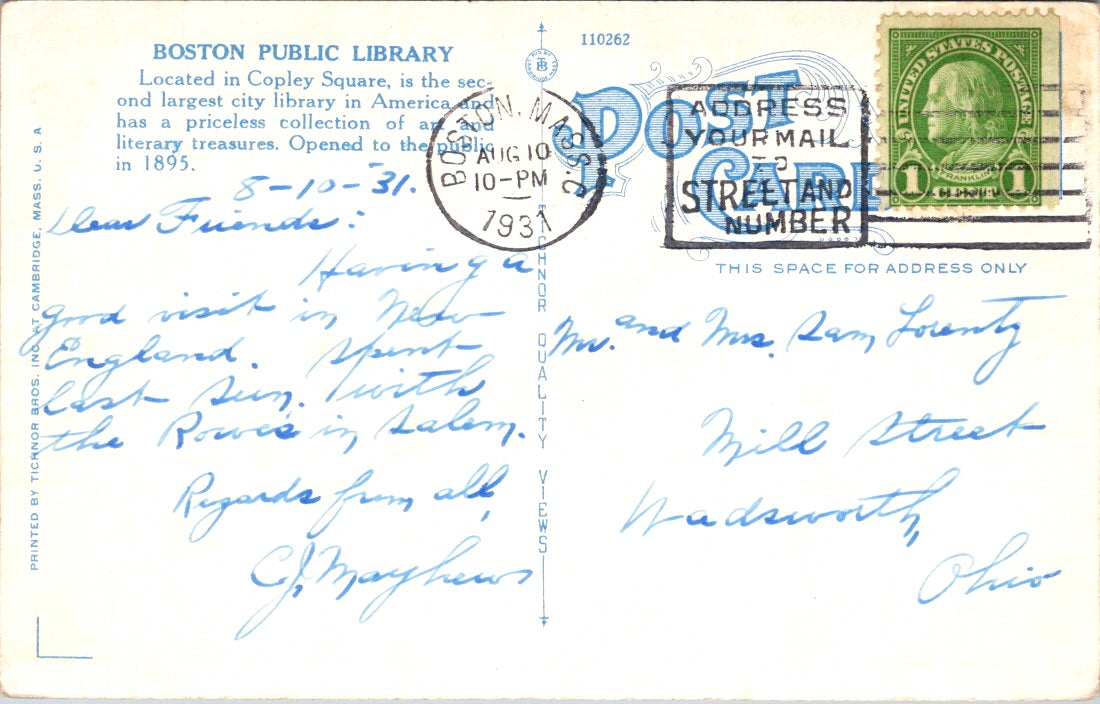 BOSTON PUBLIC LIBRARY
Located in Copley Square, is the sec-
ond largest city library in America and
has a priceless collection of art and
literary treasures. Opened to the public
in 1895.
8-10-31.
Dear Friends:
Having a
good visit in New
England. Spent
last Sun. with
the Rowe's in Salem.
Regards from all,
C.J. Mayhews
PRINTED BY TICHNOR BROS. INC. AT CAMBRIDGE, MASS. U. S. A
TICHNOR QUALITY VIEWS
110262
POST CARD
BOSTON, MASS.
AUG 10
10-PM
1931
ADDRESS
YOUR MAIL
TO
STREET AND
NUMBER
UNITED STATES POSTAGE
FRANKLIN
1 1
THIS SPACE FOR ADDRESS ONLY
Mr. and Mrs. Sam Lorentz
Mill Street
Wadsworth,
Ohio